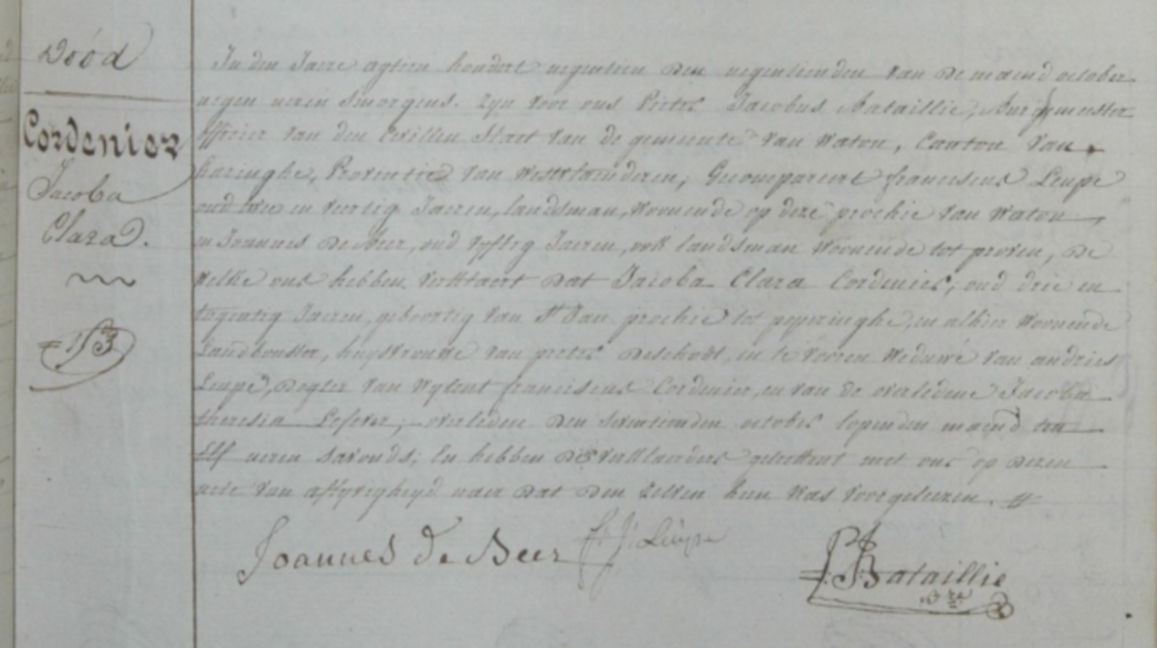 Dood
Cordenier
Jacoba
Clara.
In den Jaere agtien hondert negentien den negentienden van de maend october
negen ueren smorgens. Zyn voor ons Pieter Jacobus Bataillie, Burgemeester
officier van den Civillen Staet van de gemeente van Watou, Canton van
haringhe, Provintie van Westvlaenderen, Gecompareert franciscus Leupe
oud in veertig Jaeren, landsman, woonende op deze prochie van Watou,
en Joannes De Beer, oud vyftig Jaeren, ook landsman woonende tot proven, De
welke ons hebben verklaert dat Jacoba Clara Cordenier, oud drie en
Jaeren, gebortig van St Jan prochie tot poperinghe, en alhier woonende
Landbouster, huysvrouwe van pieter en te vooren Weduwe van andries
Leupe, Dogter van Wylent franciscus Cordenier, en van de overledene Jacoba
theresia Lefever, overleden den seventienden october lopenden maend ten
Elf ueren savonds; En hebben de verklaerders geteekent met ons op dezen
acte van naer dat den zelven hun was voorgelezen.
Joannes de Beer F: J: Leupe
P: J: Bataillie